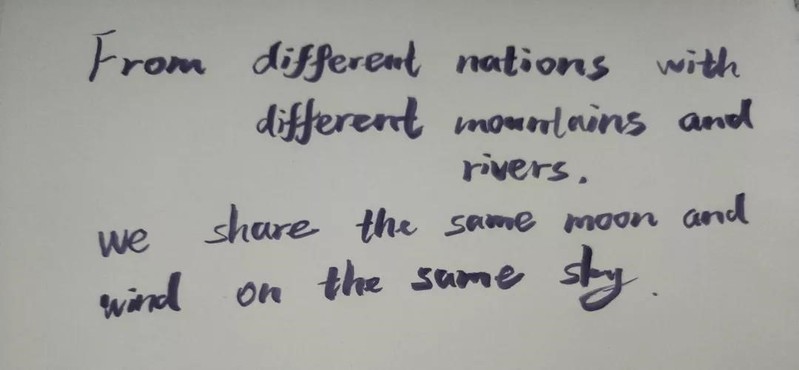 From different nations with
different mountains and
rivers.
we share the same moon and
wind on the same sky.